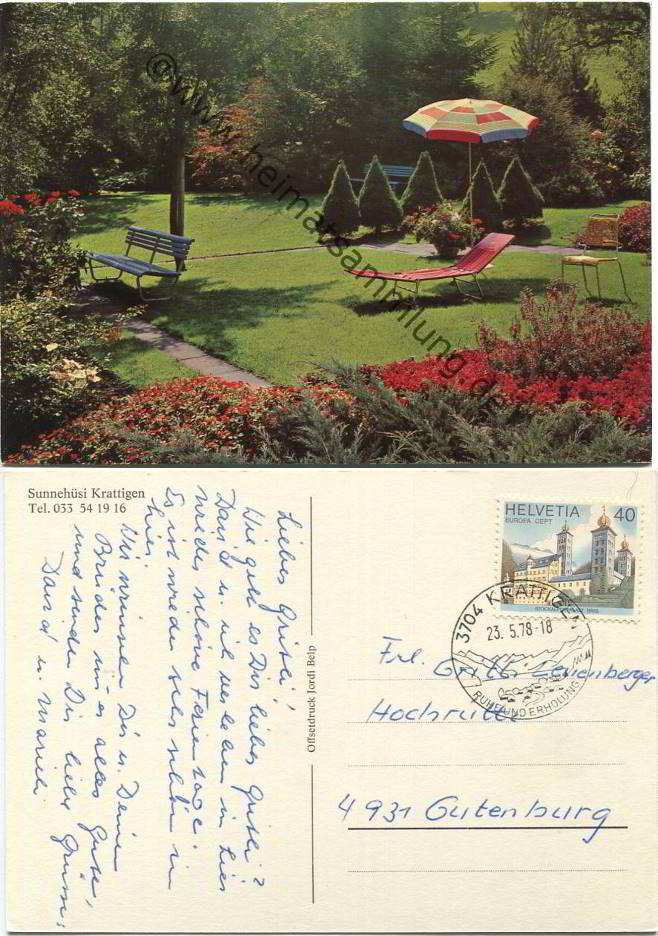 ©www.heimatsammlung.de
Sunnehüsi Krattigen
Tel. 033 54 19 16
Liebes Gritli!
Wie geht es Dir liebes Gritli?
David u. ich verleben in hier
wieder schöne Ferientage.
Es ist wieder sehr schön in
hier.
Wir wünschen Dir u. Deinen
Brüder nur alles Gute,
und senden Dir liebe Grüsse,
David u.
Offsetdruck Jordi Belp
HELVETIA 40
EUROPA CEPT
3704 KRATTIGEN
23.5.78-18
RUHE UND ERHOLUNG
Frl. Gritli Leuenberger
Hochrütti
4931 Gutenburg